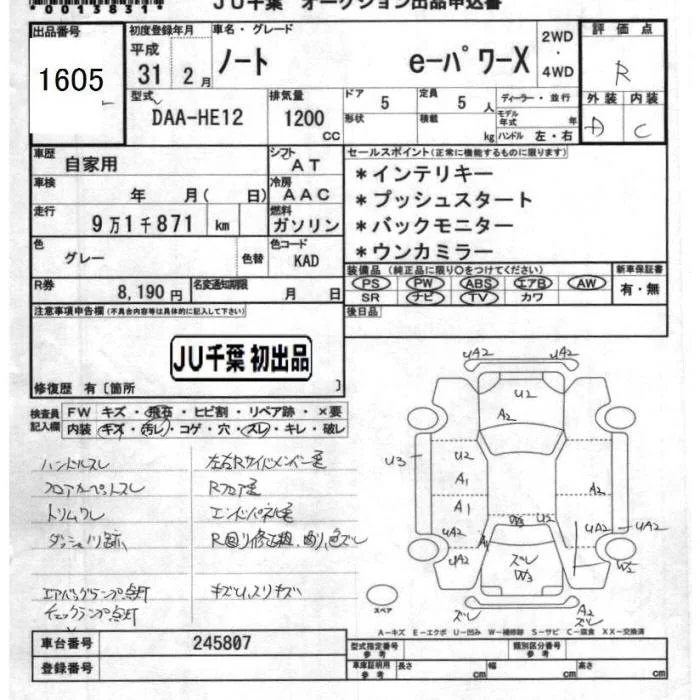 *0013831*
JU千葉 オークション出品申込書
出品番号
1605
初度登録年月
平成
31 2月
車名・グレード
ノート e-パワーX
2WD
・
4WD
評価点
R
外装 内装
D C
型式
DAA-HE12
排気量
1200
CC
ドア 5
形状
定員 5 人
積載 kg
ディーラー・並行
モデル年式 年
ハンドル 左・右
車歴
自家用
シフト
AT
車検
年 月( 日)
冷房
AAC
走行
9万1千871 km
燃料
ガソリン
色
グレー
色替
色コード
KAD
R券
8,190円
名変通知期限
月 日
セールスポイント(正常に機能するものに限ります)
*インテリキー
*プッシュスタート
*バックモニター
*ウンカミラー
装備品(純正品に限り○をつけてください)
PS PW ABS エアB AW
SR ナビ TV カワ
新車保証書
有・無
後日品
注意事項申告欄(不具合内容等は具体的に記入して下さい)
JU千葉 初出品
修復歴 有〔箇所 〕
検査員記入欄
FW キズ・飛石・ヒビ割・リペア跡・×要
内装 キズ・汚レ・コゲ・穴・スレ・キレ・破レ
ハンドルスレ
フロアカーペットスレ
トリムワレ
エアバッグランプ点灯
チェックランプ点灯
左右Rサイドメンバー歪
Rフロア歪
エンドパネル歪
キズU、スリキズ
UA2 UA2
U2
A2
U3
U2
A1
A1
A2
UA2
UA2
UA2
UA2
A1
W3 U2
ズレ
W3
W2
スペア
ズレ
A2
ズレ
A-キズ E-エクボ U-凹み W-補修跡 S-サビ C-腐食 XX-交換済
車台番号
245807
登録番号
型式指定番号
参考
類別区分番号
参考
車庫証明用
参考
長さ cm
幅 cm
高さ cm